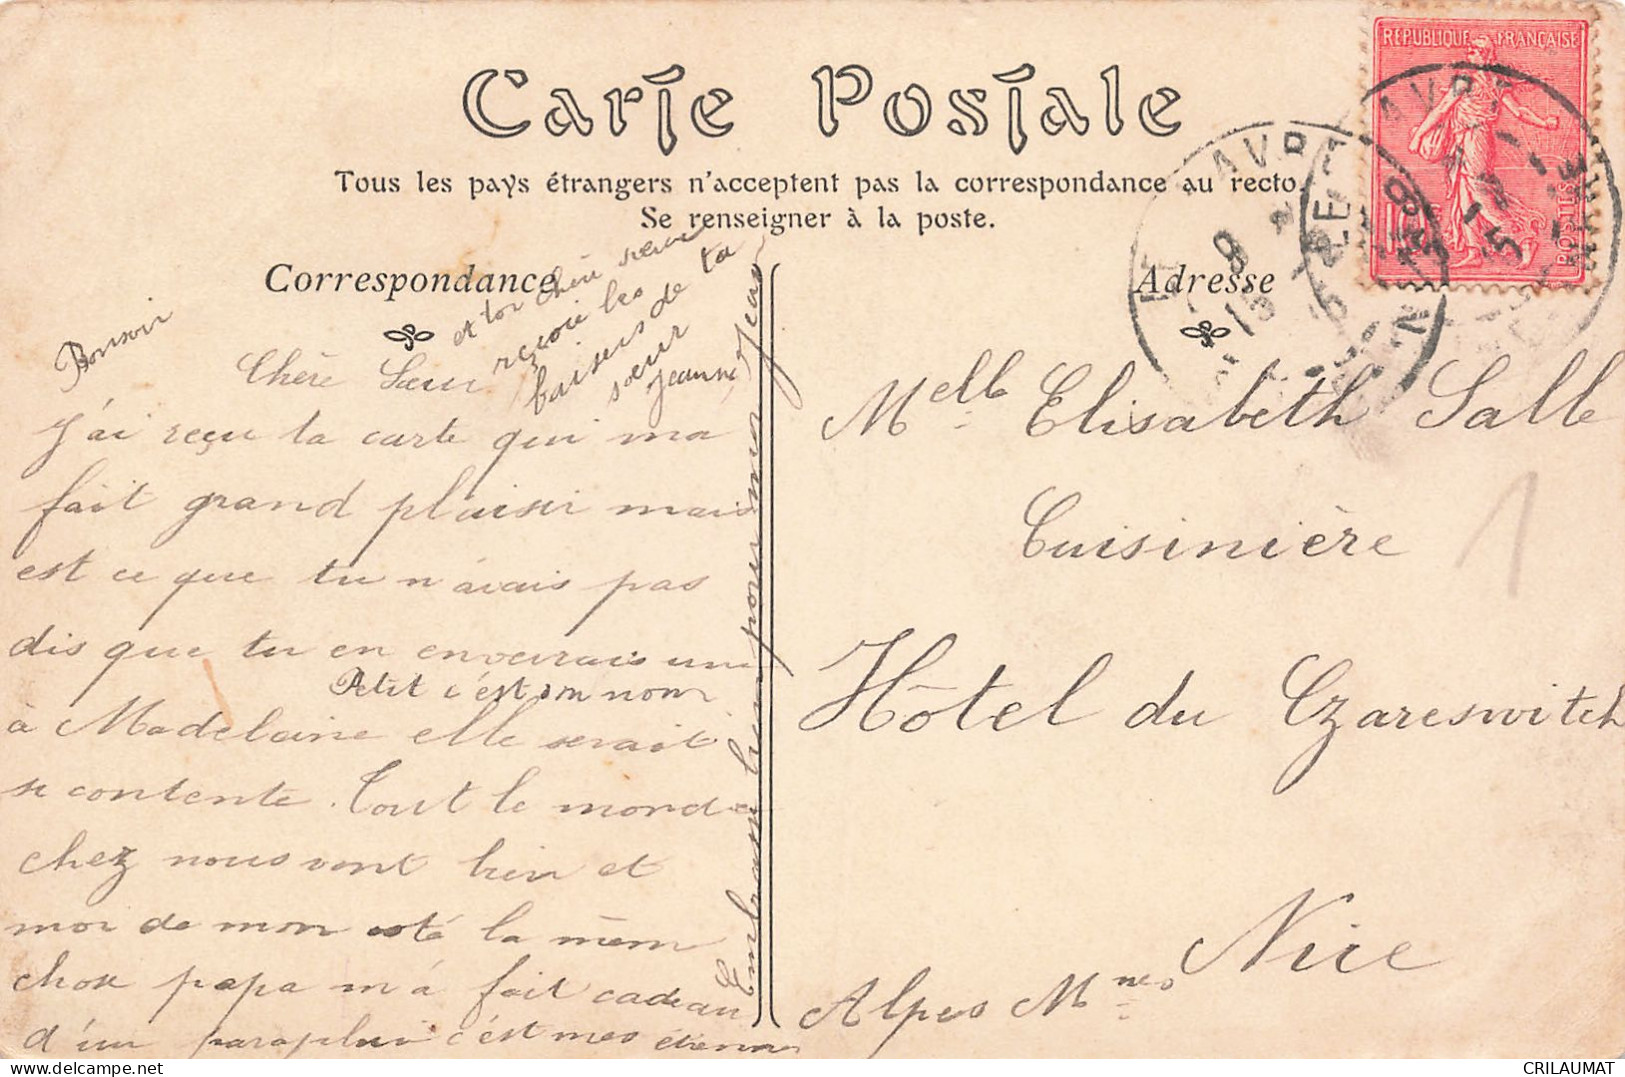 Carte Postale
Tous les pays étrangers n'acceptent pas la correspondance au recto.
Se renseigner à la poste.
Correspondance
Adresse
REPUBLIQUE FRANÇAISE
POSTES
LE HAVRE
Bonsoir
Chère Sœur
J'ai reçu ta carte qui ma
fait grand plaisir mais
est ce que tu n'avais pas
dis que tu en enverrais une
Petit c'est son nom
à Madelaine elle serait
si contente. Tout le monde
chez nous vont bien et
moi de mon coté la mêm
chose papa m'à fait cadeau
d'un parapluie c'est mes étrenne
Embrasse bien pour moi Jean
et toi chère sœur
reçoie les
baisers de ta
sœur
Jeanne
Melle Elisabeth Salle
Cuisinière
Hôtel du Czareswitch
Nice
Alpes Mnes
1
CRILAUMAT